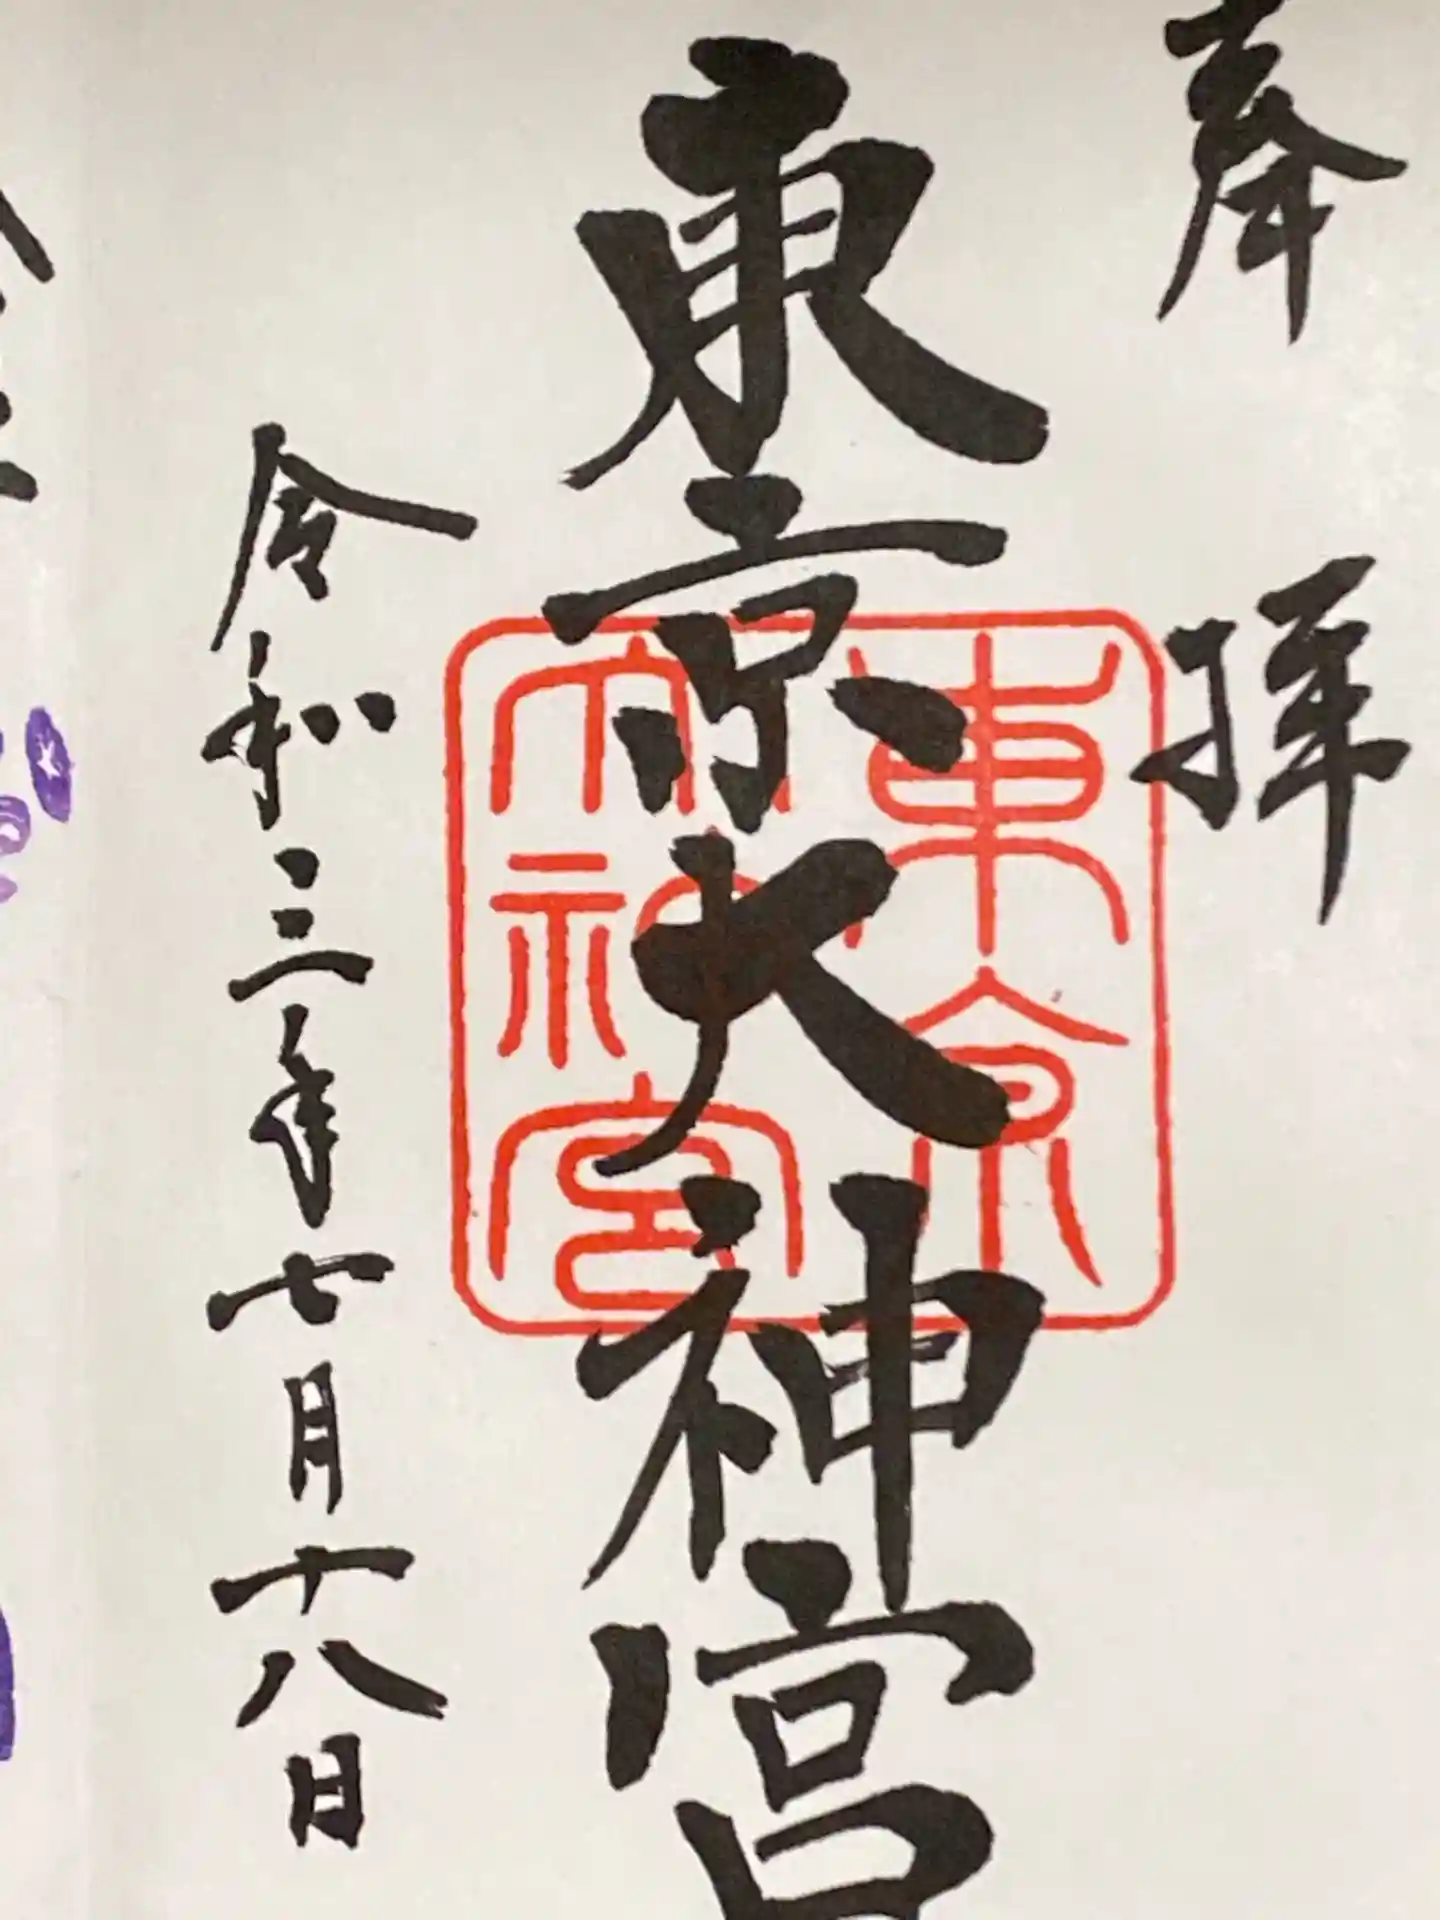 奉拝
東京大神宮
東京
大神宮
令和三年七月十八日